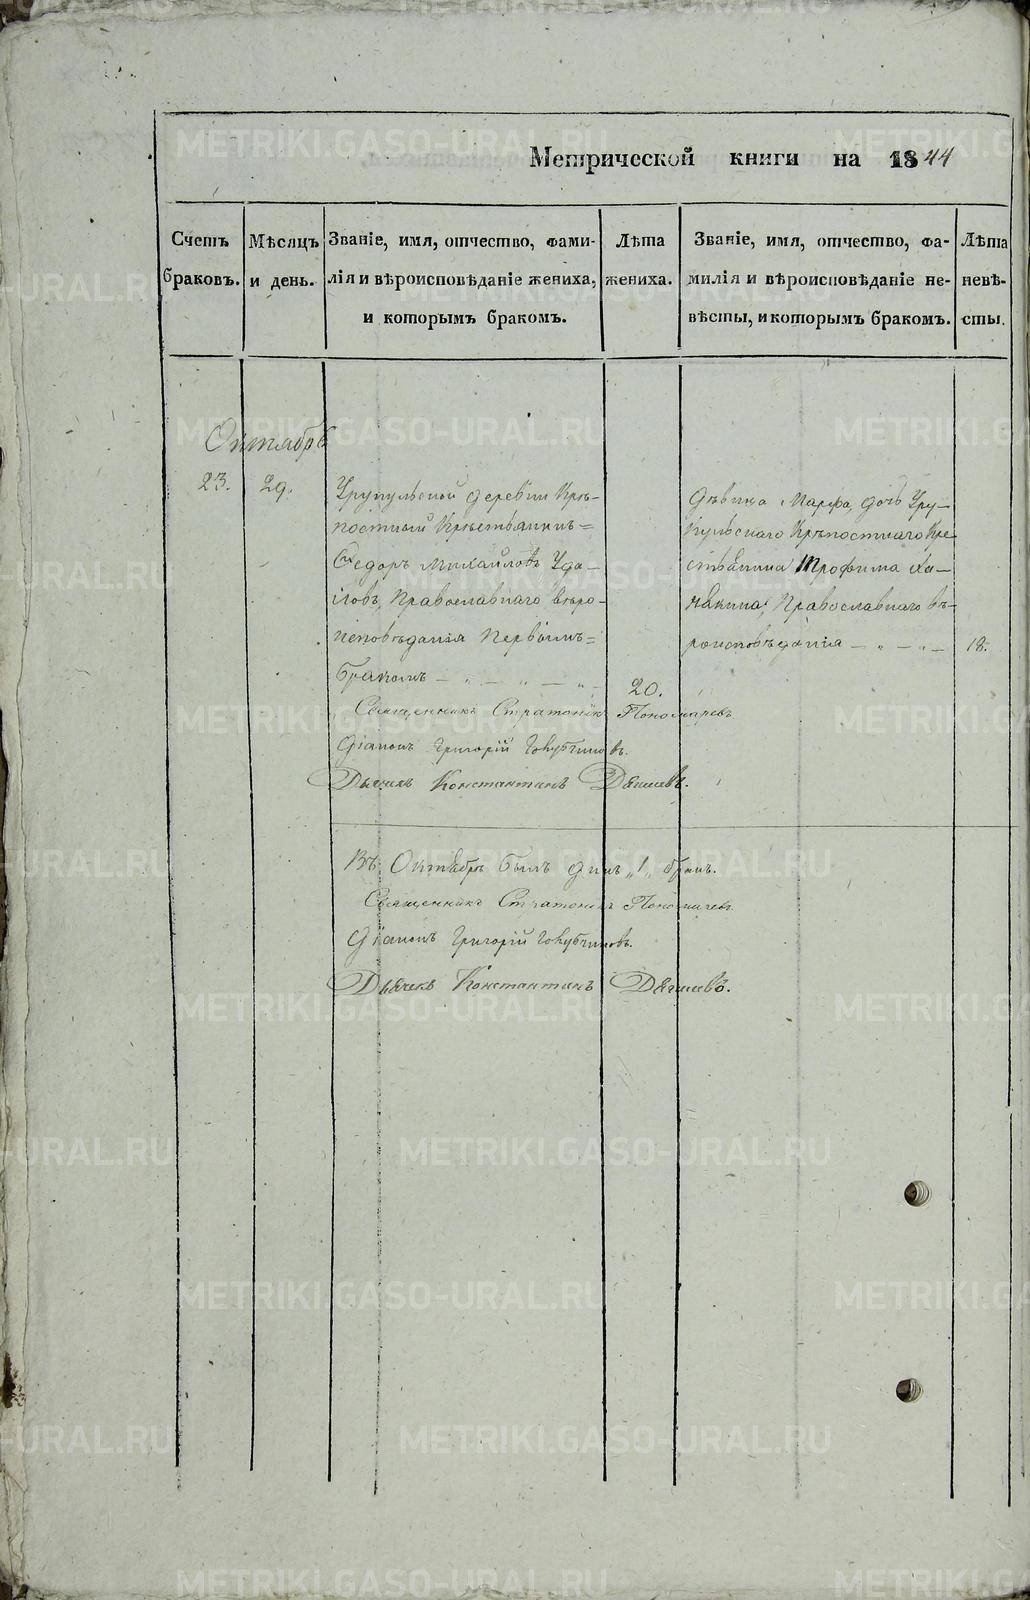 Метрической книги на 1844
Счетъ браковъ.
Мѣсяцъ и день.
Званіе, имя, отчество, фами-
лія и вѣроисповѣданіе жениха,
и которымъ бракомъ.
Лѣта
жениха.
Званіе, имя, отчество, фа-
милія и вѣроисповѣданіе не-
вѣсты, и которымъ бракомъ.
Лѣта
невѣ-
сты.
Октябрь
23. 29.
деревни Крѣ-
постный Крестьянинъ=
Ѳедоръ Михайловъ Уда-
ловъ, Православнаго вѣро-
исповѣданія Первымъ=
бракомъ — „ — „ — „ —
20.
Дѣвица Марфа, дочь Уру-
кульскаго Крѣпостнаго Кре-
стьянина Трофима Ха-
Православнаго вѣ-
роисповѣданія — „ — „ —
18.
Священникъ Стратоникъ Пономаревъ
Діаконъ Григорій
Дьячекъ Константинъ Дягилевъ.
Въ Октябрѣ былъ динъ „1„ бракъ.
Священникъ Стратоникъ Пономаревъ
Діаконъ Григорій
Дьячекъ Константинъ Дягилевъ.
METRIKI.GASO-URAL.RU